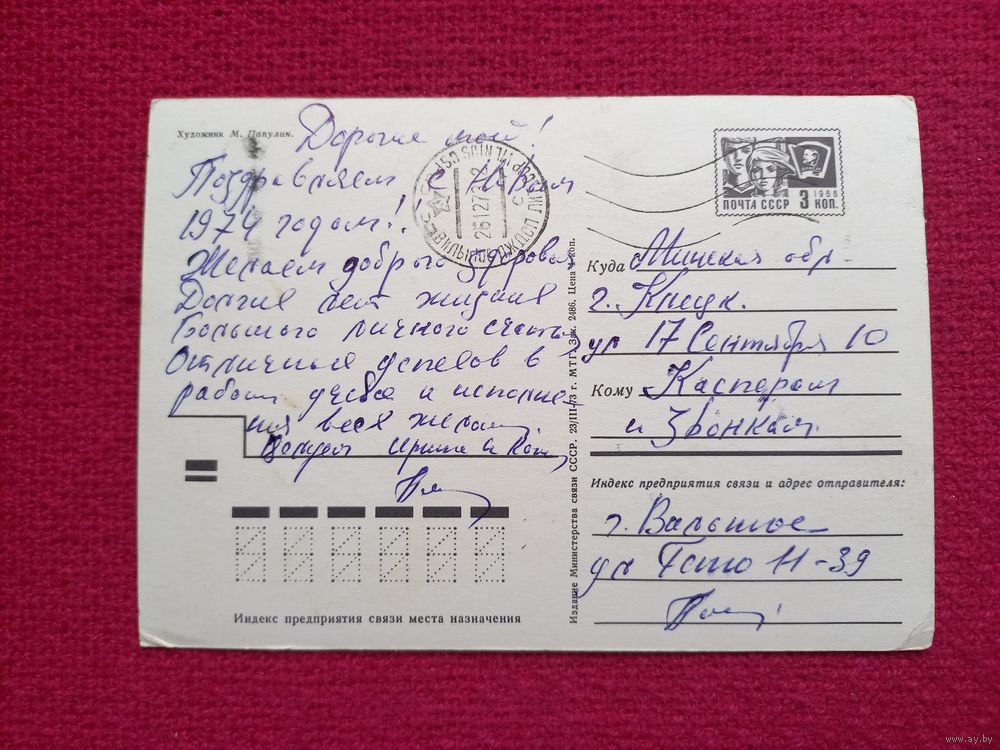 Художник М. Папулин.
Дорогие мои!
Поздравляем с Новым
1974 годом!!
Желаем доброго здоровья
Долгих лет жизни
Большого личного счастья
Отличных успехов в
работе учебе и исполне-
ния всех желан.
Ирина и
Индекс предприятия связи места назначения
Издание Министерства связи СССР. 23/III-73 г. МТГ. Зак. 2486. Цена 4 коп.
ПОЧТА СССР 3 КОП. 1966
Куда Минская обр.
г. Клецк.
ул 17 Сентября 10
Кому Касперам
и Звонкам.
Индекс предприятия связи и адрес отправителя:
г.
ул 11-39
www.ay.by